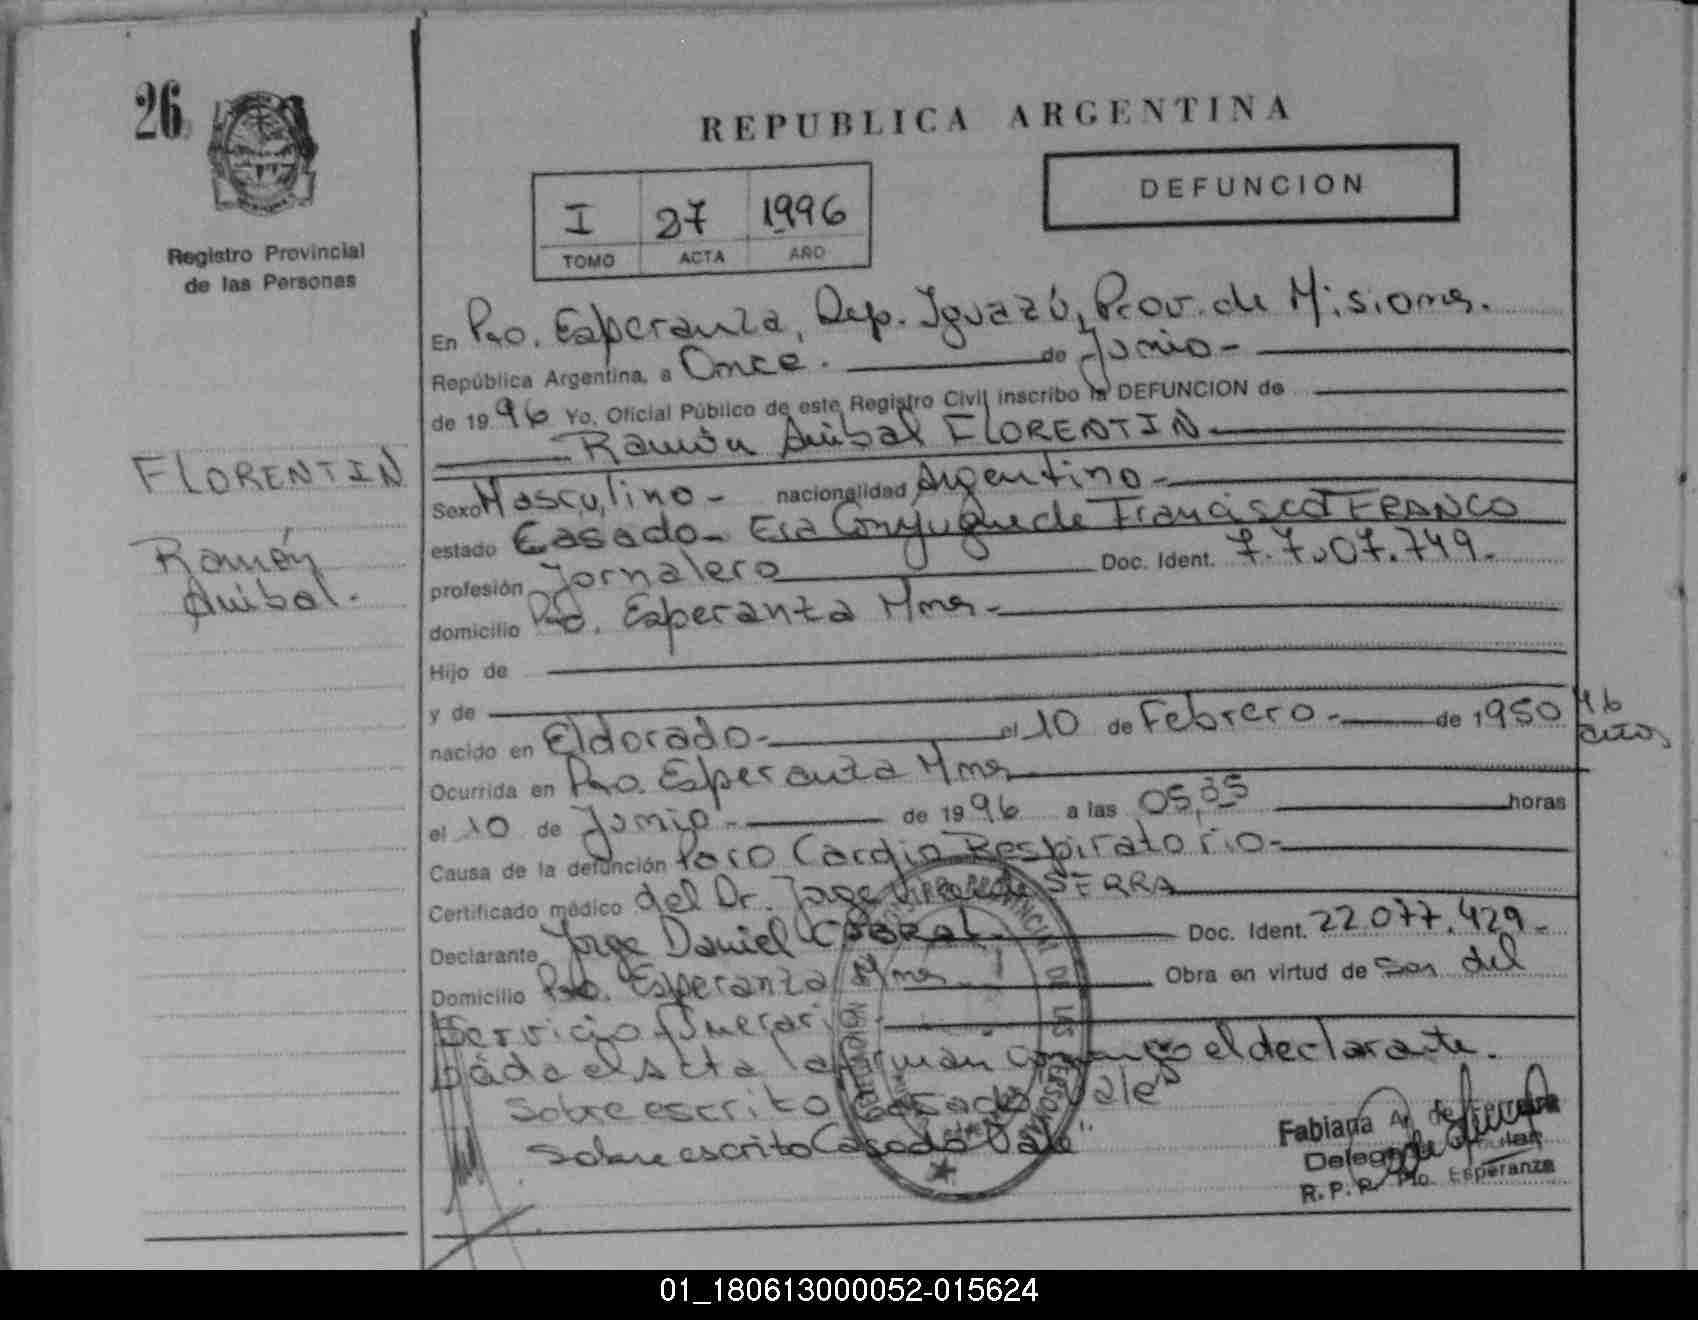 26
Registro Provincial
de las Personas
FLORENTIN
Ramón
Anibal.
REPUBLICA ARGENTINA
I 27 1996
TOMO ACTA AÑO
DEFUNCION
En Pto. Esperanza, Dep. Iguazú, Prov. de Misiones.
República Argentina, a Once. de Junio-
de 1996 Yo, Oficial Público de este Registro Civil inscribo la DEFUNCION de
Ramón Anibal FLORENTIN-
Sexo Masculino - nacionalidad Argentino-
estado Casado- Era Conyugue de Francisca FRANCO
profesión Jornalero Doc. Ident. 7.707.749.-
domicilio Pto. Esperanza Mnes-
Hijo de
y de
nacido en Eldorado- el 10 de Febrero- de 1950 46
años
Ocurrida en Pto. Esperanza Mnes
el 10 de Junio- de 1996 a las 05,35 horas
Causa de la defunción Paro Cardio Respiratorio-
Certificado médico del Dr. Jorge SERRA
Declarante Jorge Daniel CABRAL- Doc. Ident. 22.077.429-
Domicilio Pto. Esperanza Mnes Obra en virtud de ser del
Servicio funerari
el Acta la firman el declarante.
Sobre escrito Casado Vale"
Sobre escrito Casado Vale"
Fabiana A. de
R.P.P. Pto. Esperanza
01_180613000052-015624